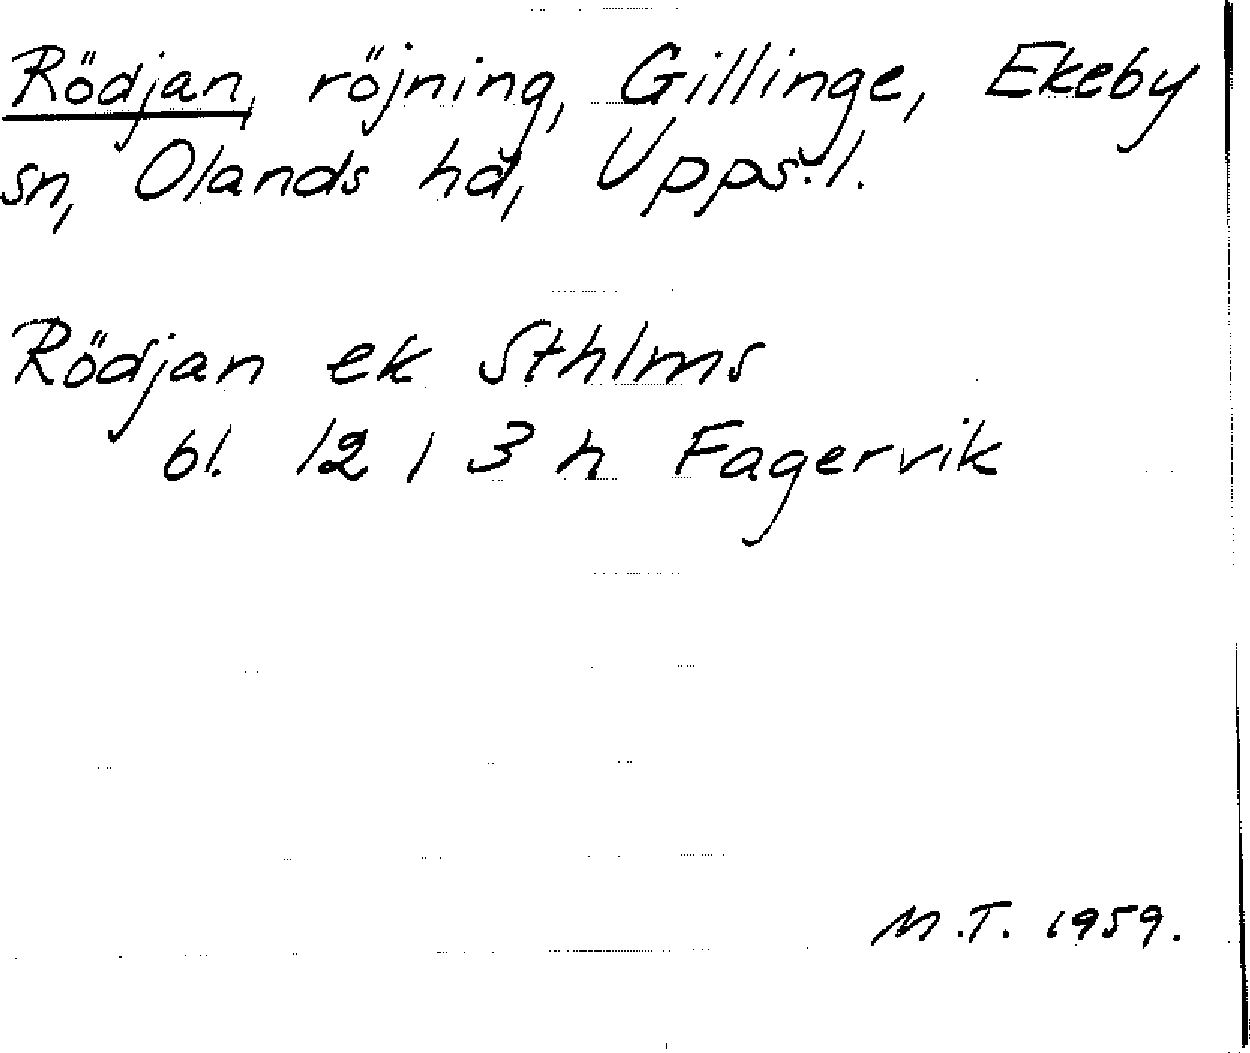 Rödjan, röjning, Gillinge, Ekeby
sn, Olands hd, Upps. l.
Rödjan ek Sthlms
bl. 12 1 3 h Fagervik
M.T. 1959.